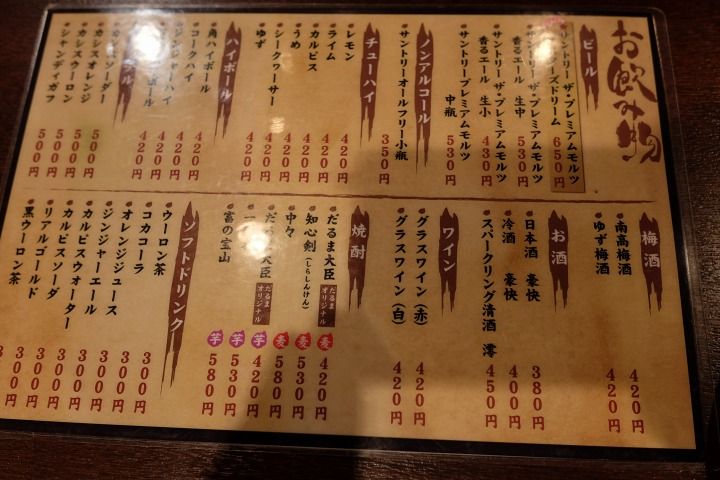 お飲み物
ビール
サントリー ザ・プレミアムモルツ
650円
サントリー ザ・プレミアムモルツ
香るエール 生中
530円
サントリー ザ・プレミアムモルツ
香るエール 生小
430円
サントリープレミアムモルツ
中瓶
530円
ノンアルコール
サントリーオールフリー小瓶
350円
チューハイ
レモン
420円
ライム
420円
カルピス
420円
うめ
420円
シークワーサー
420円
ゆず
420円
ハイボール
角ハイボール
420円
コークハイ
420円
ジンジャーハイ
420円
420円
カシスソーダー
500円
カシスオレンジ
500円
カシスウーロン
500円
シャンディガフ
500円
梅酒
南高梅酒
420円
ゆず梅酒
420円
お酒
日本酒 豪快
380円
冷酒 豪快
400円
スパークリング清酒 澪
450円
ワイン
グラスワイン(赤)
420円
グラスワイン(白)
420円
焼酎
だるま大臣 だるまオリジナル 麦
420円
知心剣(しらしんけん) 麦
530円
中々 麦
580円
だるま大臣 だるまオリジナル 芋
420円
芋
530円
富の宝山 芋
580円
ソフトドリンク
ウーロン茶
300円
コカコーラ
300円
オレンジジュース
300円
ジンジャーエール
300円
カルピスウォーター
300円
カルピスソーダ
300円
リアルゴールド
300円
黒ウーロン茶
300円